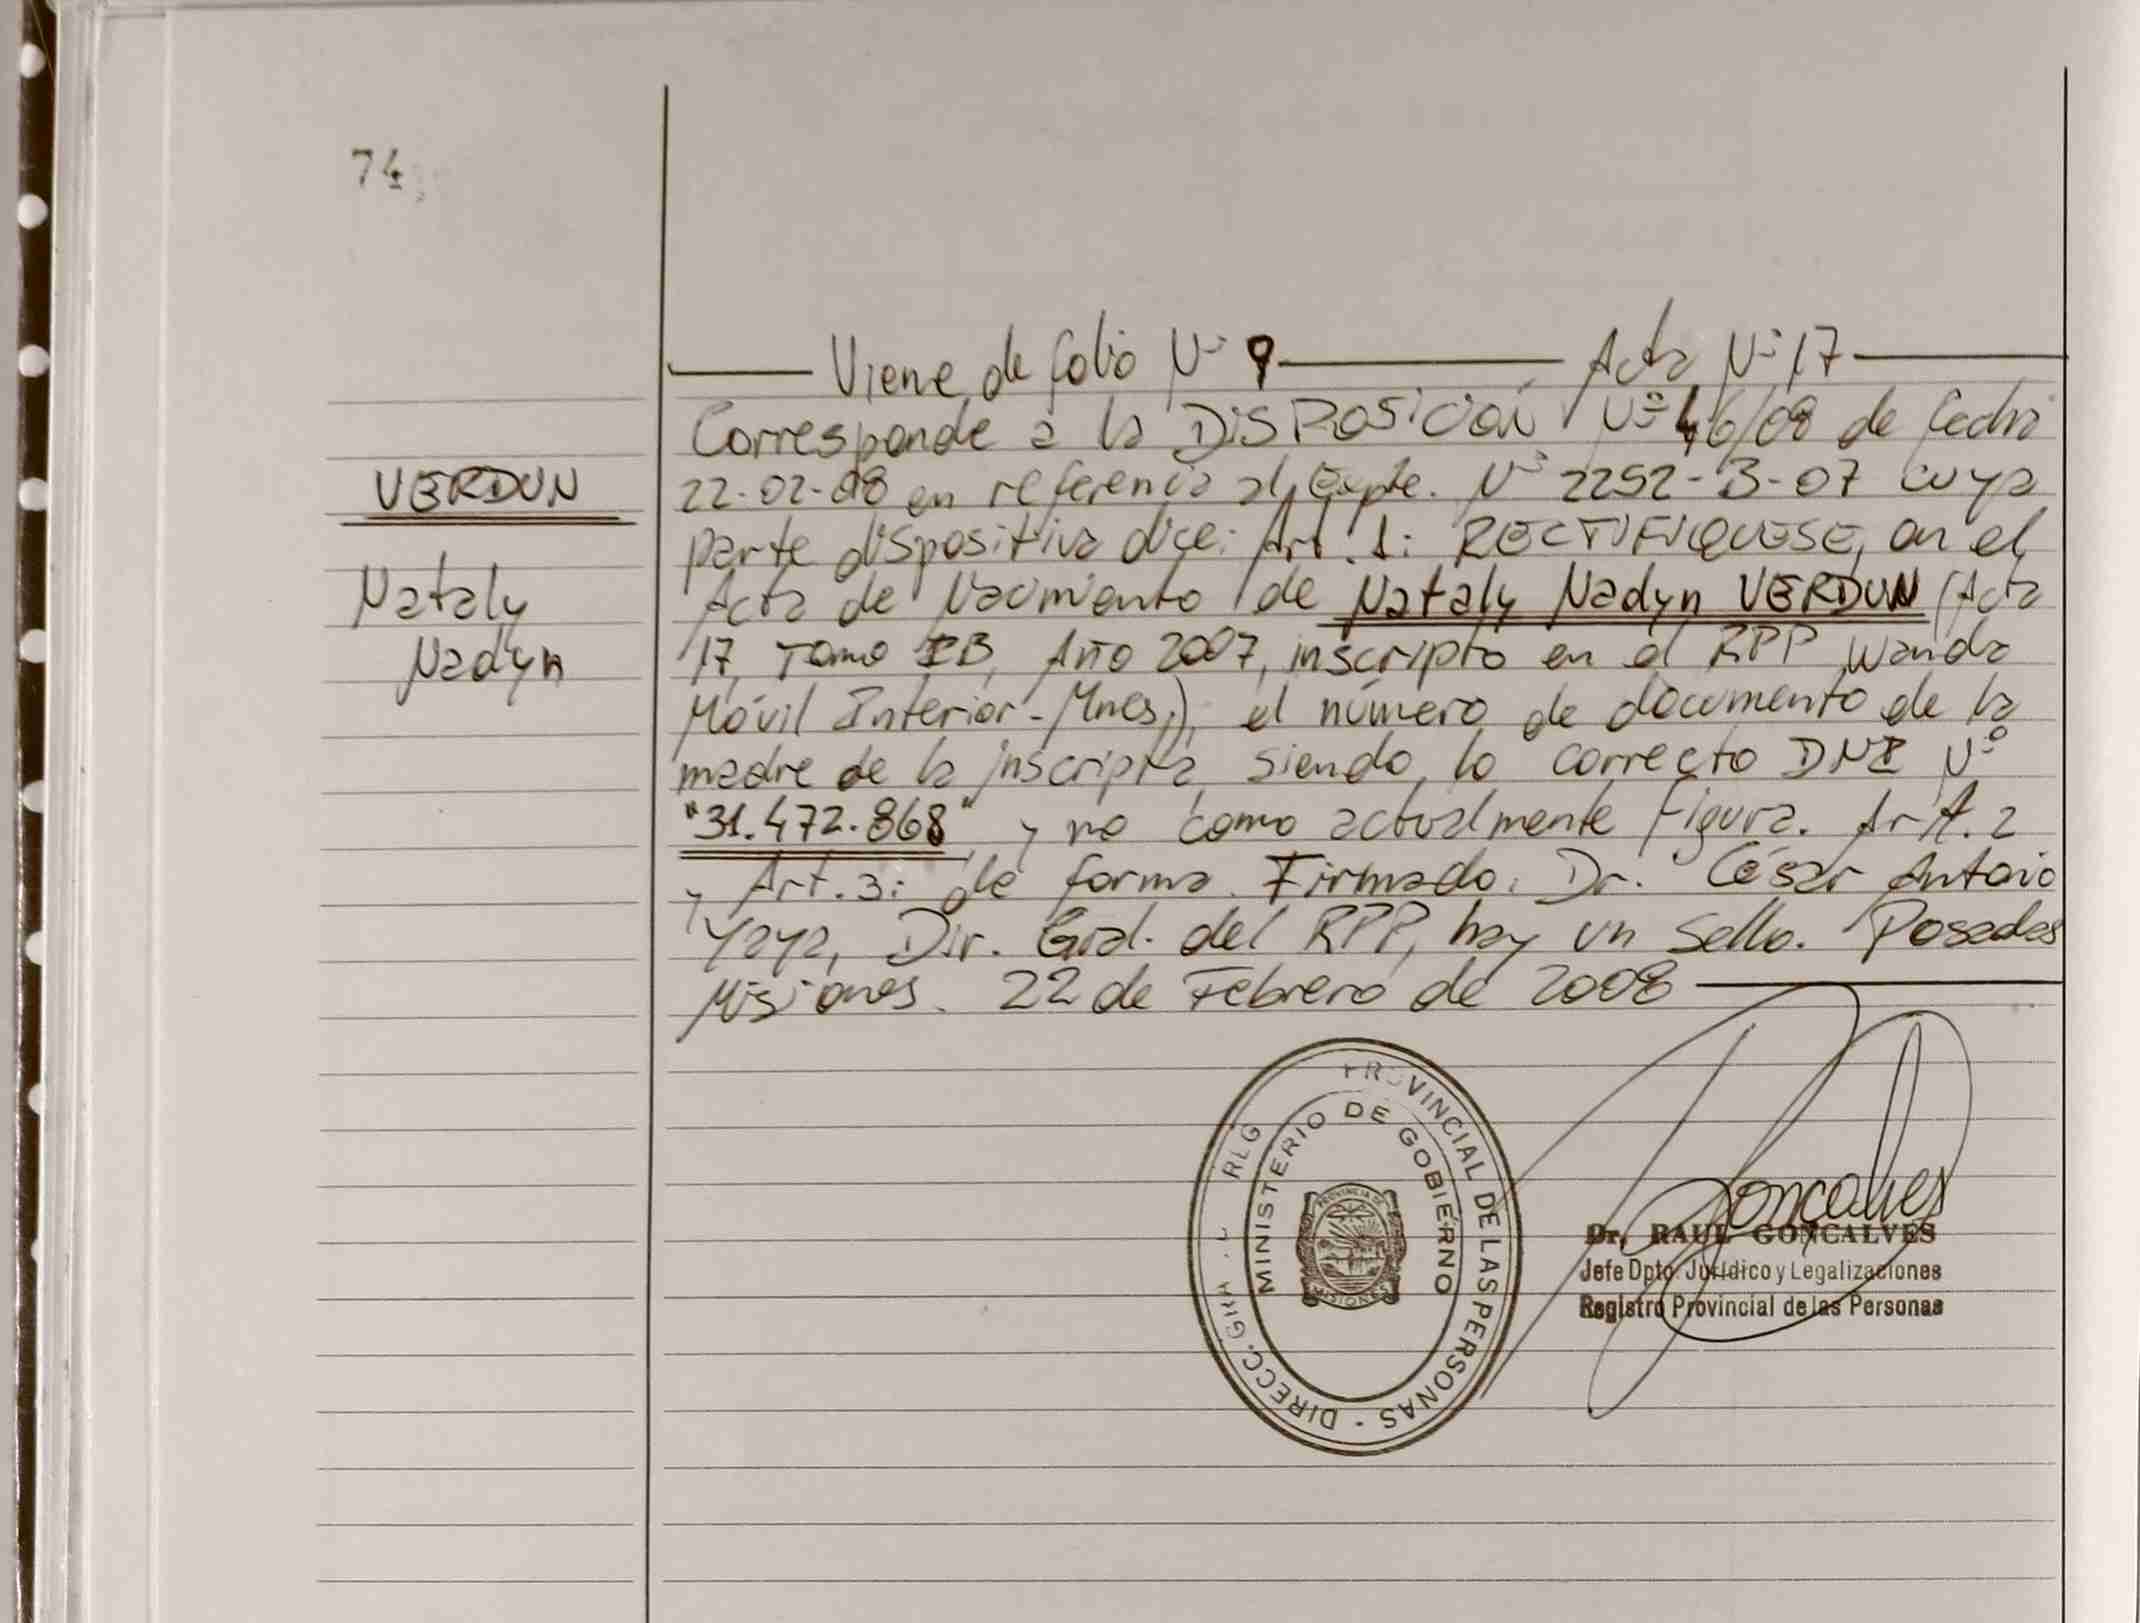 74
Viene de folio Nº 9 Acta Nº 17
Corresponde a la DISPOSICIÓN Nº 46/08 de fecha
VERDUN
22-02-08 en referencia al Expte. Nº 2252-B-07 cuya
parte dispositiva dice: Art. 1: RECTIFIQUESE, en el
Nataly
Acta de Nacimiento de Nataly Nadyn VERDUN (Acta
Nadyn
17, Tomo IB, Año 2007, inscripto en el RPP Wanda
Móvil Interior-Mnes.), el número de documento de la
madre de la inscripta, siendo lo correcto DNI Nº
"31.472.868" y no como actualmente figura. Art. 2
y Art. 3: de forma. Firmado: Dr. César Antonio
Yaya, Dir. Gral. del RPP, hay un sello. Posadas
Misiones. 22 de Febrero de 2008
PROVINCIAL DE LAS PERSONAS - DIRECC. GRAL
MINISTERIO DE GOBIERNO
PROVINCIA DE
MISIONES
Gonçalves
Dr. RAUL GONÇALVES
Jefe Dpto. Jurídico y Legalizaciones
Registro Provincial de las Personas